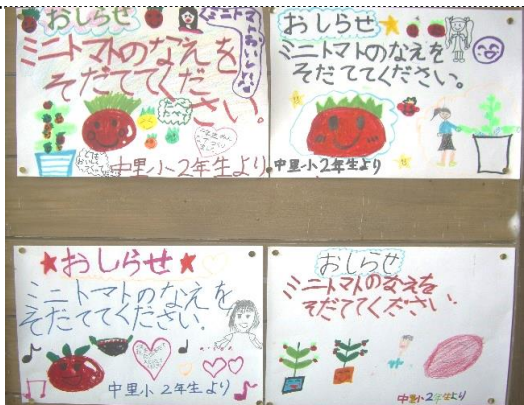 おしらせ
ミニトマトのなえを
そだててくだ
さい。
中里小2年生より
おしらせ
ミニトマトのなえを
そだててください。
中里小2年生より
★おしらせ★
ミニトマトのなえを
そだててください。
中里小2年生より
おしらせ
ミニトマトのなえを
そだててください。
中里小2年生より